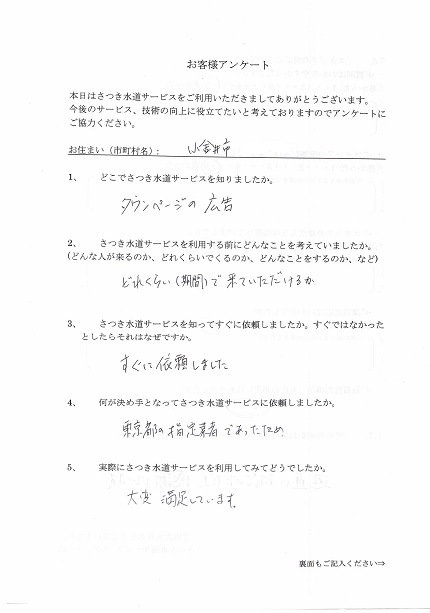 お客様アンケート
本日はさつき水道サービスをご利用いただきましてありがとうございます。
今後のサービス、技術の向上に役立てたいと考えておりますのでアンケートに
ご協力ください。
お住まい（市町村名）： 小金井市
1、 どこでさつき水道サービスを知りましたか。
タウンページの広告
2、 さつき水道サービスを利用する前にどんなことを考えていましたか。
（どんな人が来るのか、どれくらいでくるのか、どんなことをするのか、など）
どれくらい（期間）で来ていただけるか
3、 さつき水道サービスを知ってすぐに依頼しましたか。すぐではなかった
としたらそれはなぜですか。
すぐに依頼しました
4、 何が決め手となってさつき水道サービスに依頼しましたか。
東京都の指定業者であったため
5、 実際にさつき水道サービスを利用してみてどうでしたか。
大変満足しています。
裏面もご記入ください⇒